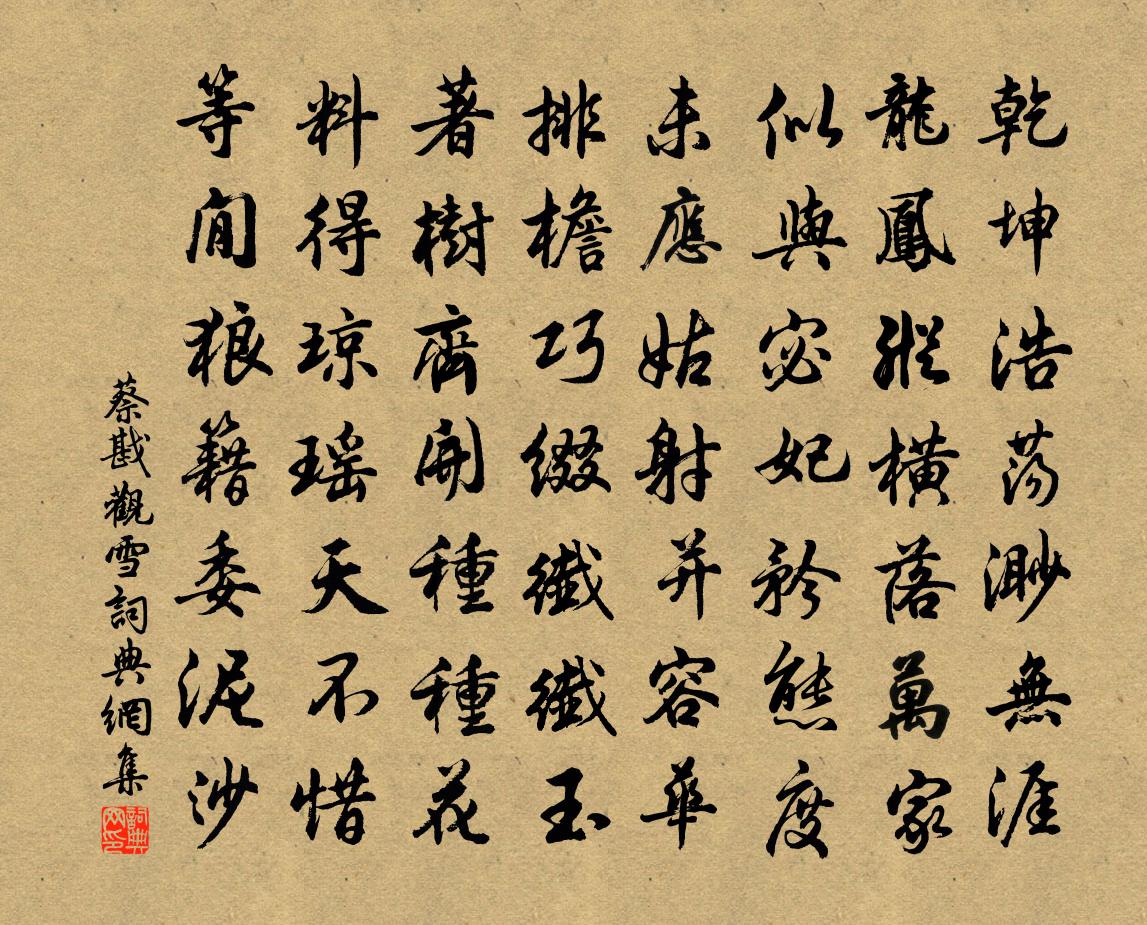 乾坤浩荡渺無涯
龍鳳縱橫落萬家
似與宓妃矜態度
未應姑射并容華
排檐巧綴纖纖玉
著樹齊開種種花
料得琼瑶天不惜
等閒狼籍委泥沙
蔡戡觀雪詞典網集
詞典网印